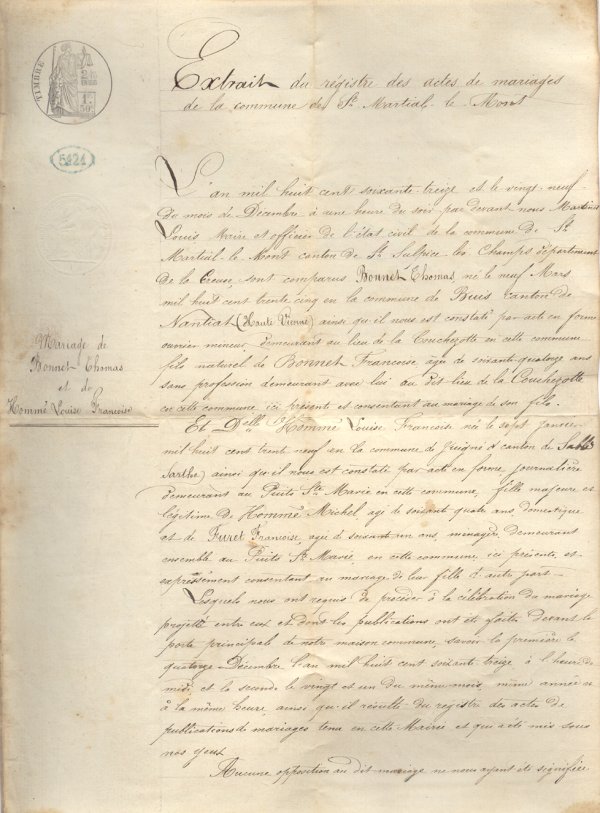 TIMBRE
2/10
EN SUS
1F
50C
5424
Extrait du régistre des actes de mariages
de la commune de St Martial le Mont
L'an mil huit cent soixante treize et le vingt neuf
du mois de Décembre à une heure du soir par devant nous Martinet
Louis Maire et officier de l'état civil de la commune de St
Martial le Mont canton de St Sulpice les Champs département
de la Creuse, sont comparus Bonnet Thomas né le neuf Mars
mil huit cent trente cinq en la commune de Buis canton de
Nantiat (Haute Vienne) ainsi qu'il nous est constaté par acte en forme
ouvrier mineur demeurant au lieu de la Couchezotte en cette commune
fils naturel de Bonnet Francoise âgé de soixante quatorze ans
sans profession demeurant avec lui au dit lieu de la Couchezotte
en cette commune ici présente et consentant au mariage de son fils.
Et Delle Hommé Louise Francoise né le sept Janvier
mil huit cent trente neuf en la commune de Juigné canton de Sablé
Sarthe) ainsi qu'il nous est constaté par acte en forme, journalière
demeurant au Puits Ste Marie en cette commune, fille majeure et
légitime de Hommé Michel agé de soixante quatre ans, domestique
et de Furet Francoise, agé de soixante un ans, menagère, demeurant
ensemble au Puits Ste Marie, en cette commune, ici présents, et
expressement consentant au mariage de leur fille d'autre part
Lesquels nous ont requis de procéder à la célébration du mariage
projetté entre eux et dont les publications ont été faites devant la
porte principale de notre maison commune, savoir la première le
quatorze Décembre l'an mil huit cent soixante treize à l'heure de
midi, et la seconde le vingt et un du même mois, même année et
à la même heure, ainsi qu'il résulte du registre des actes de
publications de mariages tenu en cette Mairie et qui a été mis sous
nos yeux
Aucune opposition au dit mariage ne nous ayant été signifiée
Mariage de
Bonnet Thomas
et de
Hommé Louise Francoise